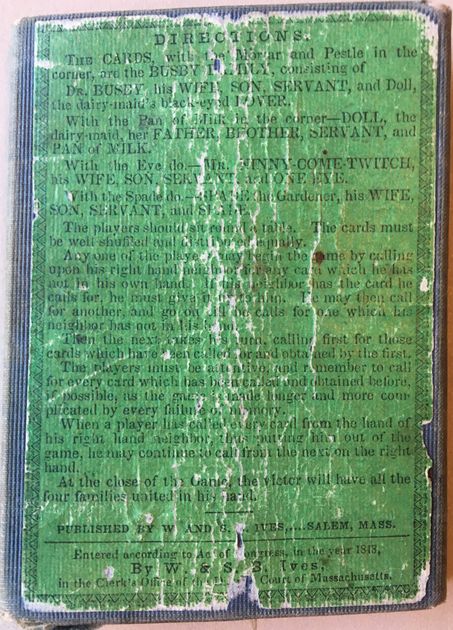 DIRECTIONS.
THE CARDS, with the Mortar and Pestle in the
corner, are the BUSBY FAMILY, consisting of
DR. BUSBY, his WIFE, SON, SERVANT, and Doll,
the dairy-maid's black-eyed LOVER.
With the Pan of Milk in the corner—DOLL, the
dairy-maid, her FATHER, BROTHER, SERVANT, and
PAN of MILK.
With the Eye do.—MR. NINNY-COME-TWITCH,
his WIFE, SON, SERVANT, and ONE EYE.
With the Spade do.—SPADE the Gardener, his WIFE,
SON, SERVANT, and SPADE.
The players should sit round a table. The cards must
be well shuffled and distributed equally.
Any one of the players may begin the game by calling
upon his right hand neighbor for any card which he has
not in his own hand. If his neighbor has the card he
calls for, he must give it to him. He may then call
for another, and go on till he calls for one which his
neighbor has not in his hand.
Then the next takes his turn, calling first for those
cards which have been called for and obtained by the first.
The players must be attentive, and remember to call
for every card which has been called and obtained before,
if possible, as the game is made longer and more com-
plicated by every failure of memory.
When a player has called every card from the hand of
his right hand neighbor, thus putting him out of the
game, he may continue to call from the next on the right
hand.
At the close of the Game, the victor will have all the
four families united in his hand.
PUBLISHED BY W. AND S. B. IVES,....SALEM, MASS.
Entered according to Act of Congress, in the year 1843,
By W. & S. B. Ives,
in the Clerk's Office of the Court of Massachusetts.